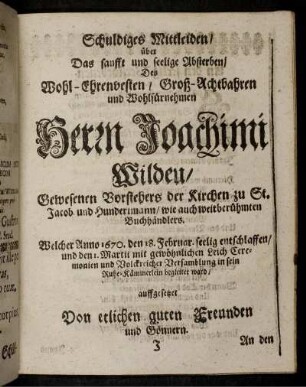 Schuldiges Mittleiden/
über
Das sanfft und seelige Absterben/
Des
Wohl-Ehrenvesten/ Groß-Achtbahren
und Wohlfürnehmen
Herrn Joachimi
Wilden/
Gewesenen Vorstehers der Kirchen zu St.
Jacob und Hundertmann/ wie auch weltberühmten
Buchhändlers.
Welcher Anno 1670. den 18. Februar. seelig entschlaffen/
und den 1. Martii mit gewöhnlichen Leich Cere-
monien und Volckreicher Versamblung in sein
Ruhe-Kämmerlein begleitet ward/
auffgesetzet
Von etlichen guten Freunden
und Gönnern.
J
An den